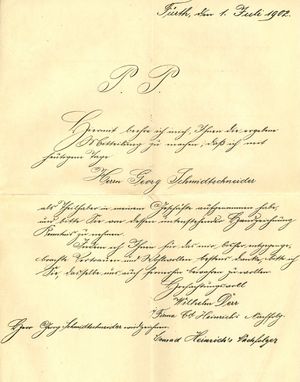 Fürth, den 1. Juli 1902.
P. P.
Hiermit beehre ich mich, Ihnen die ergebene
Mitteilung zu machen, daß ich mit
heutigem Tage
Herrn Georg Schmidtschneider
als Theilhaber in meinem Geschäfte aufgenommen habe,
und bitte Sie von dessen untenstehender Handzeichnung
Kenntnis zu nehmen.
Indem ich Ihnen für das mir bisher entgegenge-
brachte Vertrauen und Wohlwollen bestens danke, bitte ich
Sie, dasselbe uns auch fernerhin bewahren zu wollen.
Hochachtungsvoll
Wilhelm Derr
Firma Cd. Heinrich's Nachfolg.
Herr Georg Schmidtschneider wird zeichnen:
Conrad Heinrich's Nachfolger